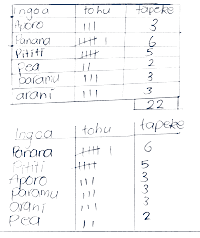 Ingoa tohu tapeke
Aporo III 3
Panana 卌 I 6
Pititi 卌 5
Pea II 2
paramu III 3
arani III 3
22
Ingoa tohu tapeke
Panana 卌 I 6
Pititi 卌 5
Aporo III 3
paramu III 3
Orani III 3
Pea II 2